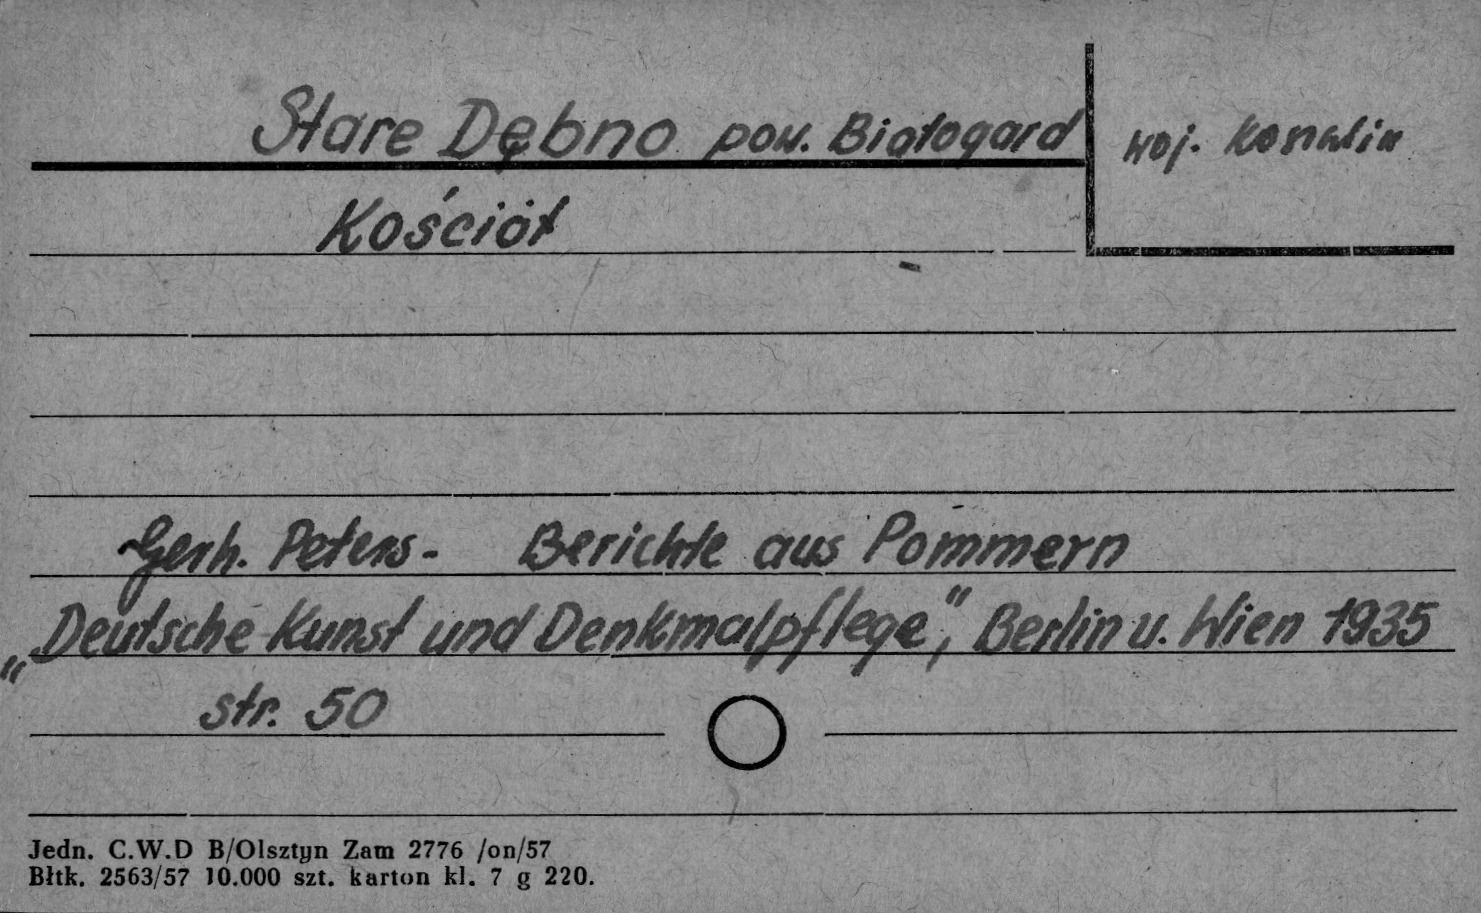 Stare Dębno pow. Białogard
woj. Koszalin
Kościół
Gerh. Peters - Berichte aus Pommern
„Deutsche Kunst und Denkmalpflege", Berlin u. Wien 1935
str. 50
Jedn. C.W.D B/Olsztyn Zam 2776 /on/57
Błtk. 2563/57 10.000 szt. karton kl. 7 g 220.